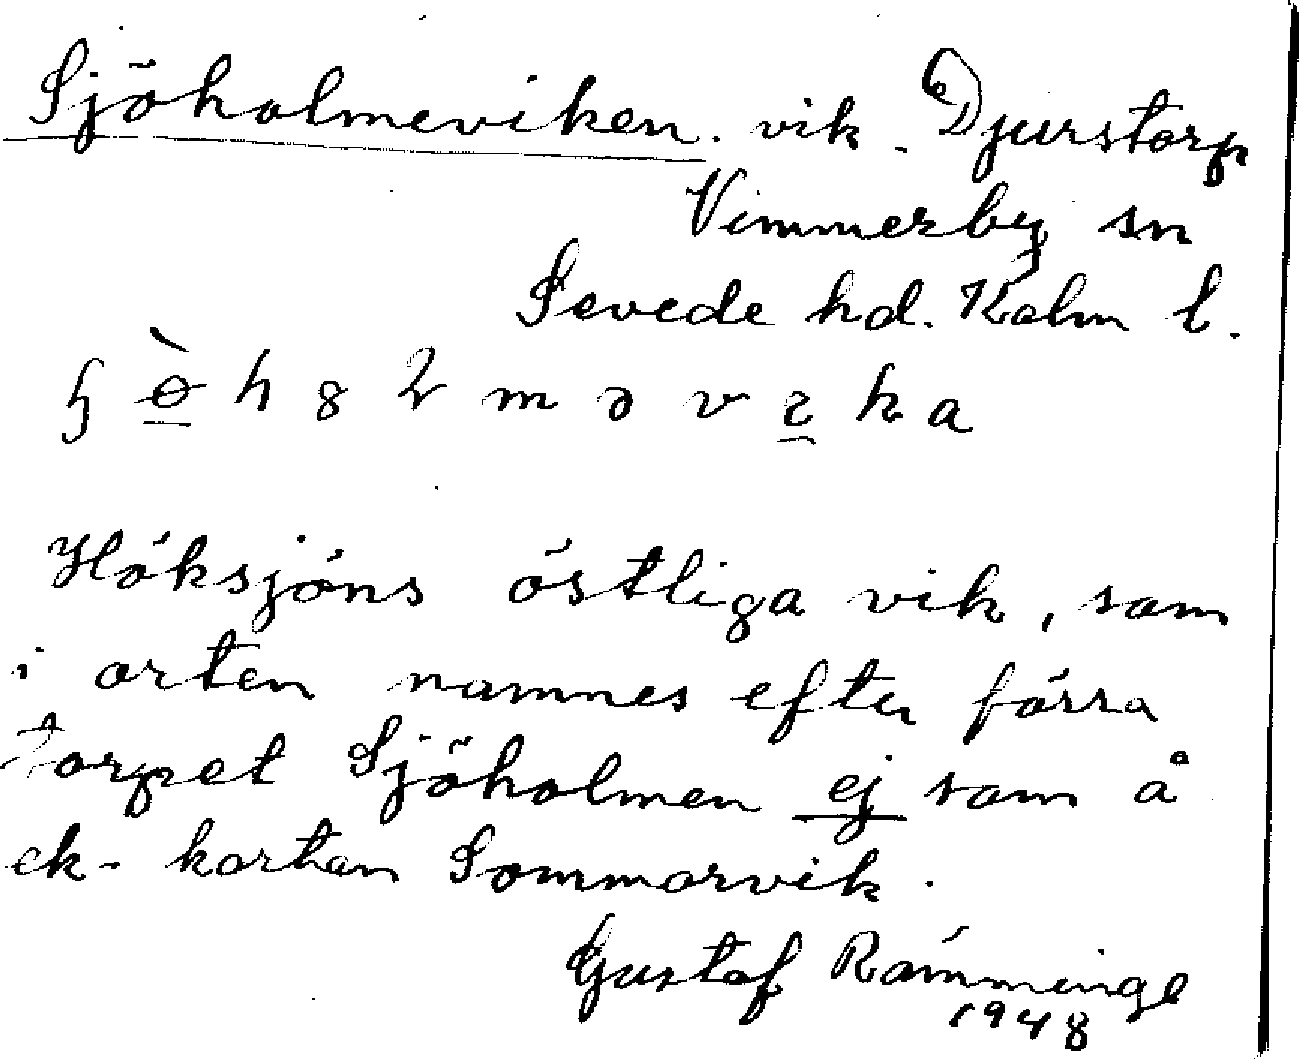 Sjöholmeviken. vik. Djurstorp
Vimmerby sn
Sevede hd. Kalm l.
Höksjöns östliga vik, som
i orten namnes efter förra
torpet Sjöholmen ej som å
ek-kartan Sommarvik.
Gustaf Rämminge
1948